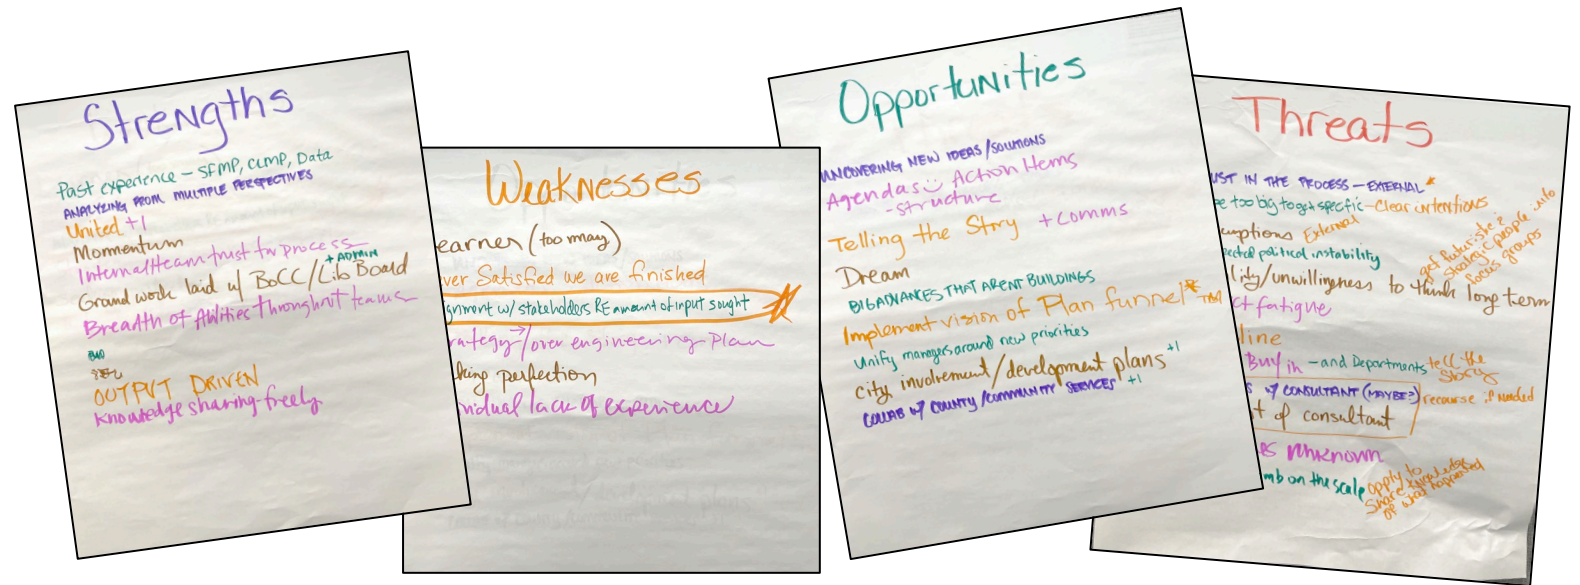 Strengths
Past experience - SFMP, CLMP, Data
ANALYZING FROM MULTIPLE PERSPECTIVES
United +1
Momentum
Internal team trust in process
+ ADMIN
Ground work laid w/ BoCC/Lib Board
Breadth of Abilities throughout teams
OUTPUT DRIVEN
Knowledge sharing-freely
Weaknesses
earner (too many)
ver Satisfied we are finished
gnment w/ stakeholders RE amount of input sought
rategy → /over engineering plan
king perfection
vidual lack of experience
Opportunities
UNCOVERING NEW IDEAS/SOLUTIONS
Agendas Action Items
-structure
Telling the Story + Comms
Dream
BIG ADVANCES THAT ARENT BUILDINGS
Implement vision of Plan funnel * TM
Unify managers around new priorities
City involvement/development plans +1
COLLAB W/ COUNTY/COMMUNITY SERVICES +1
Threats
UST IN THE PROCESS - EXTERNAL *
e too big to get specific - Clear intentions
umptions External
ected political instability
get futuristic &
strategic people into
focus groups
lity/unwillingness to think long term
ct fatigue
line
Buy in - and Departments tell the
Story
S W/ CONSULTANT (MAYBE?) recourse if needed
t of consultant
es unknown
mb on the scale
apply to
Share knowledge
of what happened